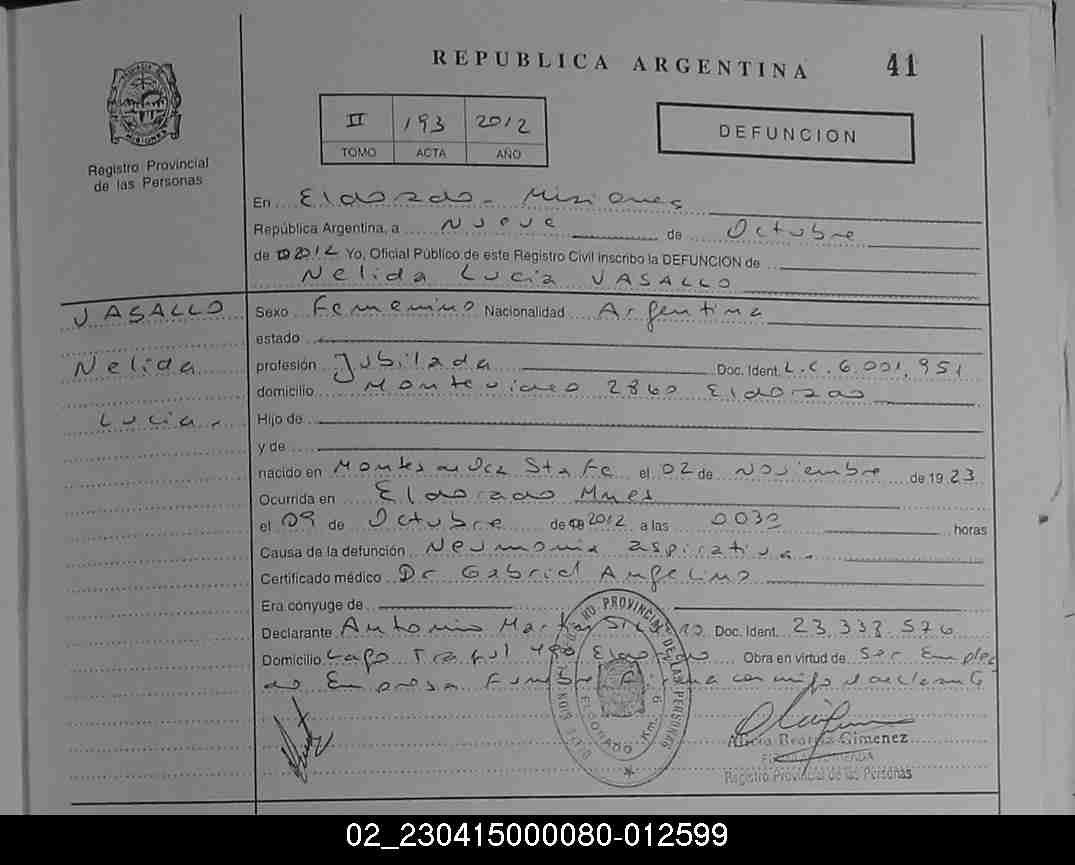 REPUBLICA ARGENTINA 41
II 193 2012
TOMO ACTA AÑO
DEFUNCION
Registro Provincial
de las Personas
En Eldorado - Misiones
República Argentina, a Nueve de Octubre
de 2012 Yo, Oficial Público de este Registro Civil inscribo la DEFUNCION de
Nelida Lucia VASALLO
VASALLO
Nelida
Lucia.
Sexo Femenino Nacionalidad Argentina
estado
profesión Jubilada Doc. Ident. L.C. 6.001.951
domicilio Montevideo 2860 Eldorado
Hijo de
y de
nacido en Montes de Oca Sta Fe el 02 de Noviembre de 1923
Ocurrida en Eldorado Mnes
el 09 de Octubre de 2012 a las 0030 horas
Causa de la defunción Neumonia aspirativa.
Certificado médico Dr Gabriel Angelino
Era cónyuge de
Declarante Antonio Doc. Ident. 23.333.576
Domicilio Lago Eldorado Obra en virtud de Ser Emplea
do Empresa Funebre Firma conmigo el declarante
PROVINCIAL DE LAS PERSONAS
ELDORADO - Km. 6
Alicia Beatriz Gimenez
Registro Provincial de las Personas
02_230415000080-012599